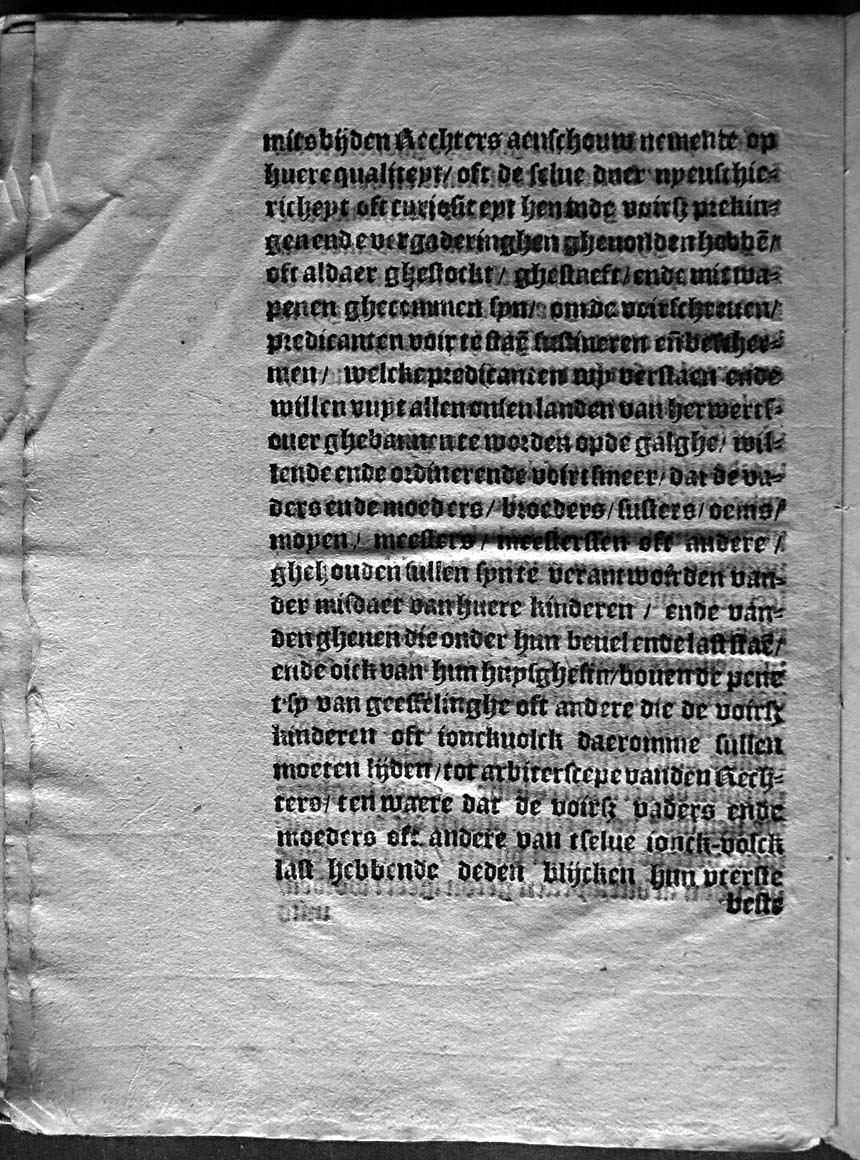 mits bijden Rechters aenschouw nemende op
huere qualiteyt/ oft de selue duer nyeuschie-
richeyt oft curiositeyt hen inde voirsz prekin-
gen ende vergaderinghen gheuonden hebbē/
oft aldaer ghestockt/ ghestaeft/ ende mit wa-
penen ghecommen syn/ om de voirschreuen/
predicanten voir te staē sustineren eñ bescher-
men/ welcke predicanten wy verstaen ende
willen vuyt allen onsen landen van herwerts-
ouer ghebannen te worden op de galghe/ wil-
lende ende ordinerende voirtsmeer/ dat de va-
ders ende moeders/ broeders/ susters/ oems/
moyen/ meesters/ meesterssen oft andere/
ghehouden sullen syn te verantworden van-
der misdaet van huere kinderen/ ende van-
den ghenen die onder hun beuel ende last staē/
ende oick van hun huysghesin/ bouen de pene
t'sy van geesselinghe oft andere die de voirsz
kinderen oft ionckuolck daeromme sullen
moeten lijden/ tot arbitersteye vanden Rech-
ters/ ten waere dat de voirsz vaders ende
moeders oft andere van tselue ionck-volck
last hebbende deden blijcken hun vterste
beste